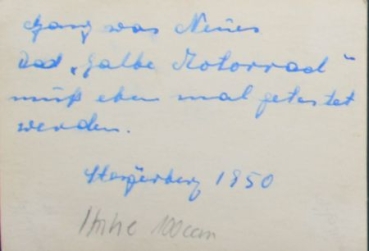 Ganz was Neues
Das „halbe Motorrad"
muß eben mal getestet
werden.
1950
Höhe 100 ccm